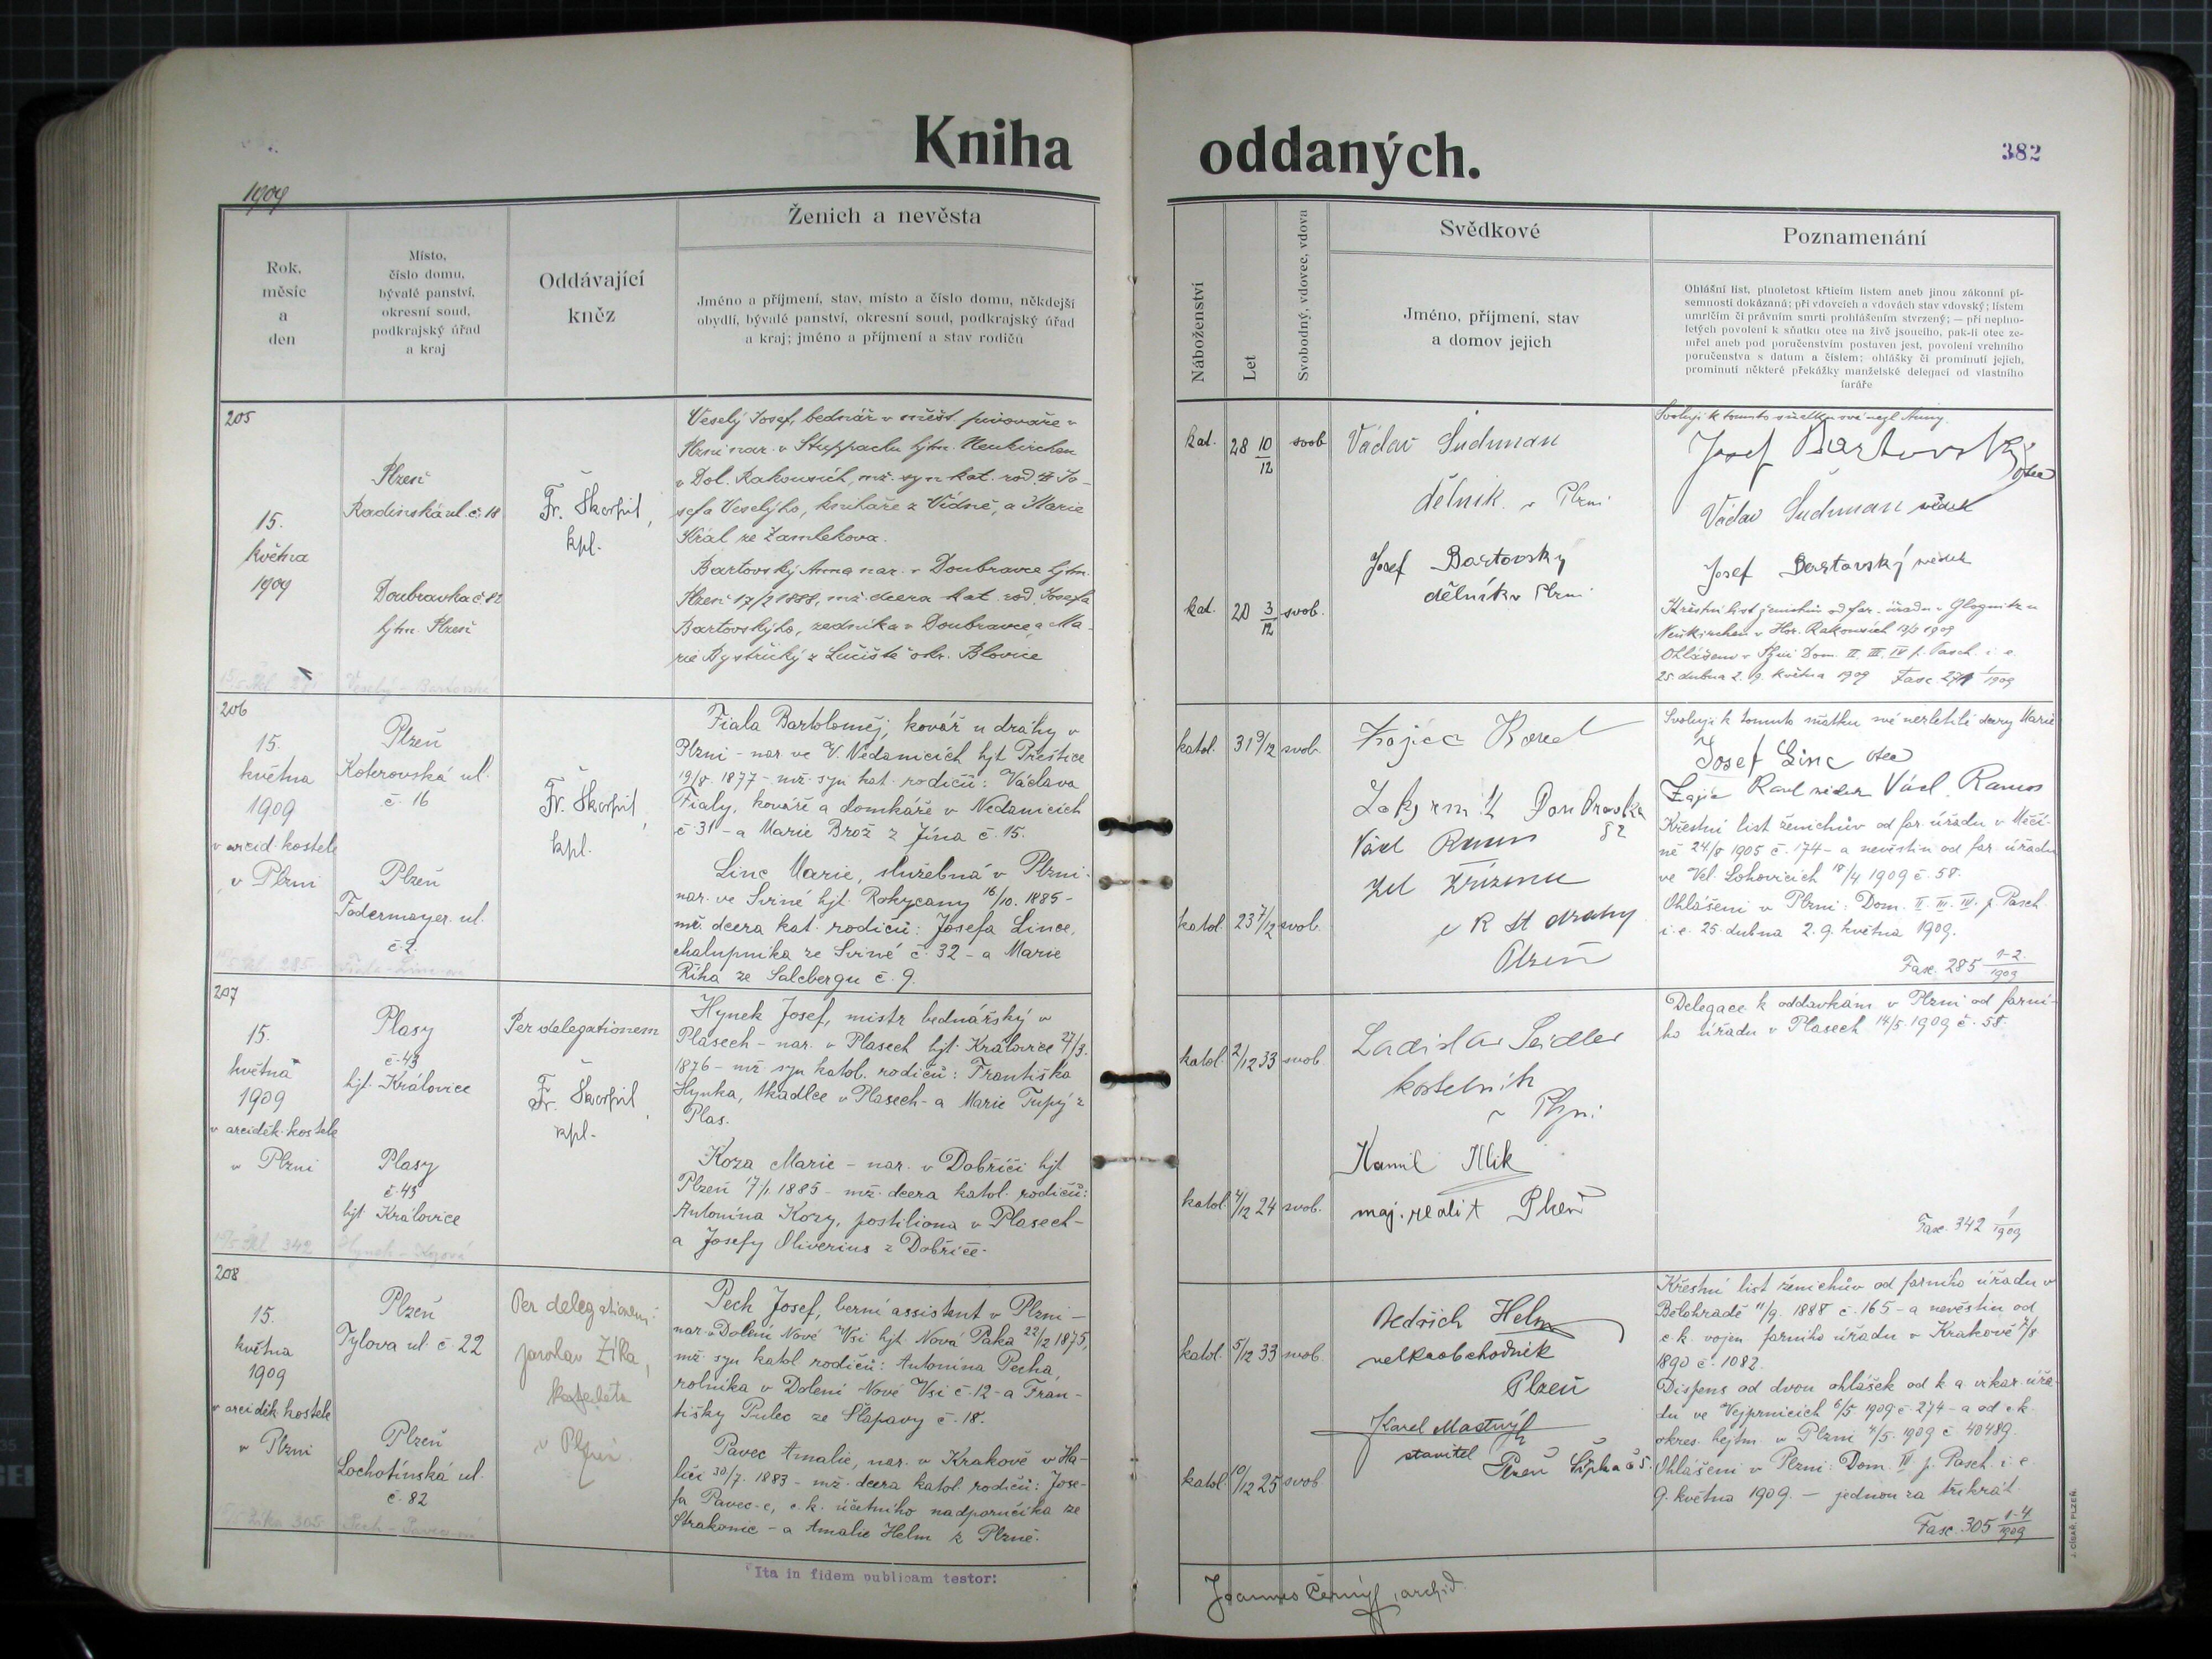 Kniha oddaných.
382
1909
Rok,
měsíc
a
den
Místo,
číslo domu,
bývalé panství,
okresní soud,
podkrajský úřad
a kraj
Oddávající
kněz
Ženich a nevěsta
Jméno a příjmení, stav, místo a číslo domu, někdejší
obydlí, bývalé panství, okresní soud, podkrajský úřad
a kraj; jméno a příjmení a stav rodičů
Náboženství
Let
Svobodný, vdovec, vdova
Svědkové
Jméno, příjmení, stav
a domov jejich
Poznamenání
Ohlášní list, plnoletost křticím listem aneb jinou zákonní pí-
semností dokázaná; při vdovcích a vdovách stav vdovský; listem
umrlčím či právním smrti prohlášením stvrzený; — při neplno-
letých povolení k sňatku otce na živě jsoucího, pak-li otec ze-
mřel aneb pod poručenstvím postaven jest, povolení vrchního
poručenstva s datum a číslem; ohlášky či prominutí jejich,
prominutí některé překážky manželské delegací od vlastního
faráře
205
15.
května
1909
Plzeň
Radinská ul. č. 18
Doubravka č. 82
hjtm. Plzeň
Fr. Škorpil,
kpl.
Veselý Josef, bednář v měšt. pivovaře v
Plzni nar. v Stuppachu hjtm. Neukirchen
v Dol. Rakousích, mž. syn kat. rod. Jo-
sefa Veselýho, knihaře z Vídně, a Marie
Král ze Žamlekova.
Bartovský Anna nar. v Doubravce hjtm.
Plzeň 17/2 1889, mž. dcera kat. rod. Josefa
Bartovskýho, zedníka v Doubravce, a Ma-
rie Bystřický z Lučiště okr. Blovice
kat. 28 10/12 svob
kat. 20 3/12 svob.
Václav Suchman
dělník v Plzni
Josef Bartovský
dělník v Plzni
Svoluji k tomuto sňatku své nezl. Anny.
Josef Bartovský otec
Václav Suchman svědek
Josef Bartovský svědek
Křestní list ženichův od far. úřadu v Glognitz u
Neukirchen v Hor. Rakousích 1909
Ohlášeno v Plzni Dom. II. III. IV p. Pasch. i. e.
25. dubna 2. 9. května 1909 Fasc. 271 1/1909
206
15.
května
1909
v arcid. kostele
v Plzni
Plzeň
Koterovská ul.
č. 16
Plzeň
Todermayer. ul.
č. 2.
Fr. Škorpil,
kpl.
Fiala Bartoloměj, kovář u dráhy v
Plzni - nar. ve V. Nedanicích hjt. Přeštice
19/8 1877 - mž. syn kat. rodičů: Václava
Fialy, kováře a domkáře v Nedanicích
č. 31 - a Marie Brož z Jína č. 15.
Linc Marie, služebná v Plzni -
nar. ve Svinné hjt. Rokycany 16/10. 1885 -
mž. dcera kat. rodičů: Josefa Lince,
chalupníka ze Svinné č. 32 - a Marie
Říha ze Salcbergu č. 9.
katol. 31 9/12 svob.
katol. 23 7/12 svob.
Doubravka
82
Václ Ramos
dráhy
Plzeň
Svoluji k tomuto sňatku své nezletilé dcery Marie
Josef Linc otec
Václ. Ramos
Křestní list ženichův od far. úřadu v Měčí-
ně 24/8 1905 č. 174 - a nevěstin od far. úřadu
ve Vel. Lohovicích 18/4 1909 č. 58.
Ohlášeni v Plzni: Dom. II. III. IV. p. Pasch.
i. e. 25. dubna 2. 9. května 1909.
Fasc. 285 1-2./1909
207
15.
května
1909
v arciděk. kostele
v Plzni
Plasy
č. 43
hjt. Královice
Plasy
č. 43
hjt. Královice
Per delegationem
Fr. Škorpil,
kpl.
Hynek Josef, mistr bednářský v
Plasech - nar. v Plasech hjt. Královice 27/3.
1876 - mž. syn katol. rodičů: Františka
Hynka, tkadlce v Plasech - a Marie Tupý z
Plas.
Koza Marie - nar. v Dobříči hjt.
Plzeň 17/1 1885 - mž. dcera katol. rodičů:
Antonína Kozy, postiliona v Plasech -
a Josefy Oliverius z Dobříče.
katol. 2/12 33 svob.
katol. 4/12 24 svob.
Ladislav Seidler
kostelník
v Plzni
Kamil Klik
maj. realit Plzeň
Delegace k oddavkám v Plzni od farní-
ho úřadu v Plasech 14/5. 1909 č. 58.
Fasc. 342 1/1909
208
15.
května
1909
v arciděk. kostele
v Plzni
Plzeň
Tylova ul. č. 22
Plzeň
Lochotínská ul.
č. 82
Per delegationem:
Jaroslav Žilka,
katecheta
v Plzni
Pech Josef, berní assistent v Plzni -
nar. v Dolení Nové Vsi hjt. Nová Paka 22/12 1875,
mž. syn katol. rodičů: Antonína Pecha,
rolníka v Dolení Nové Vsi č. 12 - a Fran-
tišky Pulec ze Šlapavy č. 18.
Pavec Amalie, nar. v Krakově v Ha-
liči 30/7. 1883 - mž. dcera katol. rodičů: Jose-
fa Pavec-e, c. k. účetního nadporučíka ze
Strakonic - a Amalie Helm z Plzně.
katol. 5/12 33 svob.
katol. 10/12 25 svob.
Bedřich Helm
velkoobchodník
Plzeň
Karel
stavitel Plzeň
Křestní list ženichův od farního úřadu v
Bělohradě 11/9. 1888 č. 165 - a nevěstin od
c. k. vojen. farního úřadu v Krakově 7/8
1890 č. 1082.
Dispens od dvou ohlášek od k. a vikar. úřa-
du ve Vejprnicích 6/5 1909 č. 274 - a od c. k.
okres. hejtm. v Plzni 4/5. 1909 č. 40489.
Ohlášeni v Plzni: Dom. IV. p. Pasch. i. e.
9. května 1909. — jednou za třikrát.
Fasc. 305 1-4/1909
Ita in fidem publicam testor:
Joannes Černý, archid.
J. CÍSAŘ, PLZEŇ.